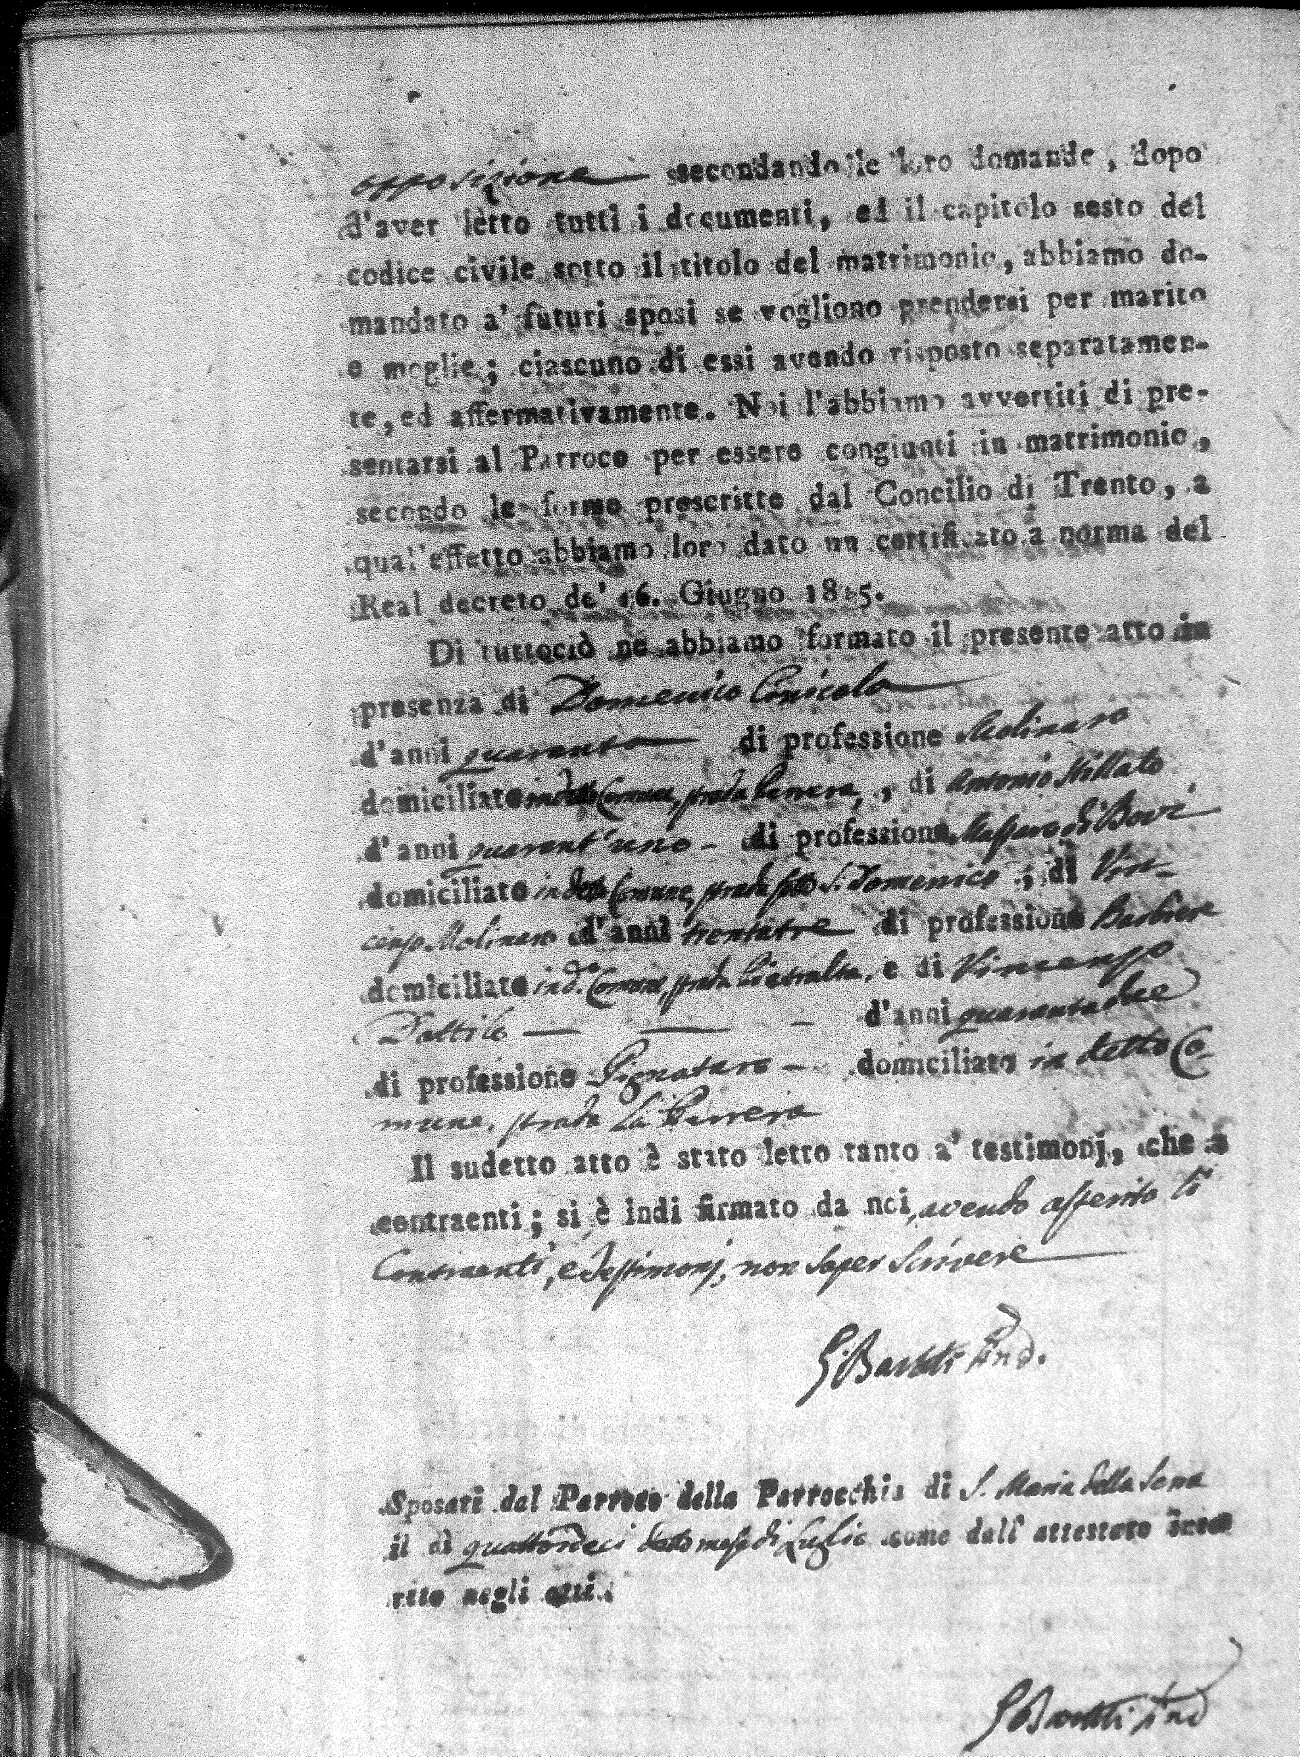 opposizione secondando le loro domande, dopo
d'aver letto tutti i documenti, ed il capitolo sesto del
codice civile sotto il titolo del matrimonio, abbiamo do-
mandato a' futuri sposi se vogliono prendersi per marito
e moglie; ciascuno di essi avendo risposto separatamen-
te, ed affermativamente. Noi l'abbiamo avvertiti di pre-
sentarsi al Parroco per essere congiunti in matrimonio,
secondo le forme prescritte dal Concilio di Trento, a
qual'effetto abbiamo loro dato un certificato a norma del
Real decreto de' 16. Giugno 1815.
Di tuttociò ne abbiamo formato il presente atto in
presenza di Domenico
d'anni quaranta di professione Molinaro
domiciliato in detto Comune, strada , di Antonio
d'anni quarant'uno - di professione Massaro di Bovi
domiciliato in detto Comune, strada sotto S. Domenico ; di Vin-
cenzo Molinaro d'anni trentatre di professione Barbiere
domiciliato in d.o Comune, strada , e di Vincenzo
Dattilo d'anni quarantadue
di professione Pignataro - domiciliato in detto Co-
mune, strada La
Il sudetto atto è stato letto tanto a' testimonj, che a
contraenti; si è indi firmato da noi, avendo asserito li
Contraenti, e Testimonj, non saper Scrivere

Sposati dal Parroco della Parrocchia di S. Maria della
il dì quattordeci detto mese di Luglio come dall' attestato inse-
rito negli atti.